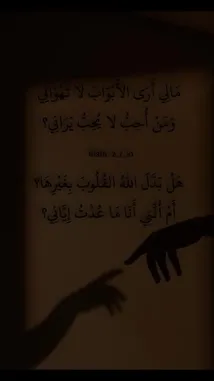 مَالِي أَرَى الأَبْوَابَ لَا تَهْوَانِي
وَمَنْ أُحِبُّ لَا يُحِبُّ يَرَانِي؟
هَلْ بَدَّلَ اللهُ القُلُوبَ بِغَيْرِهَا؟
أَمْ أَنَّنِي أَنَا مَا عُدْتُ إِيَّانِي؟